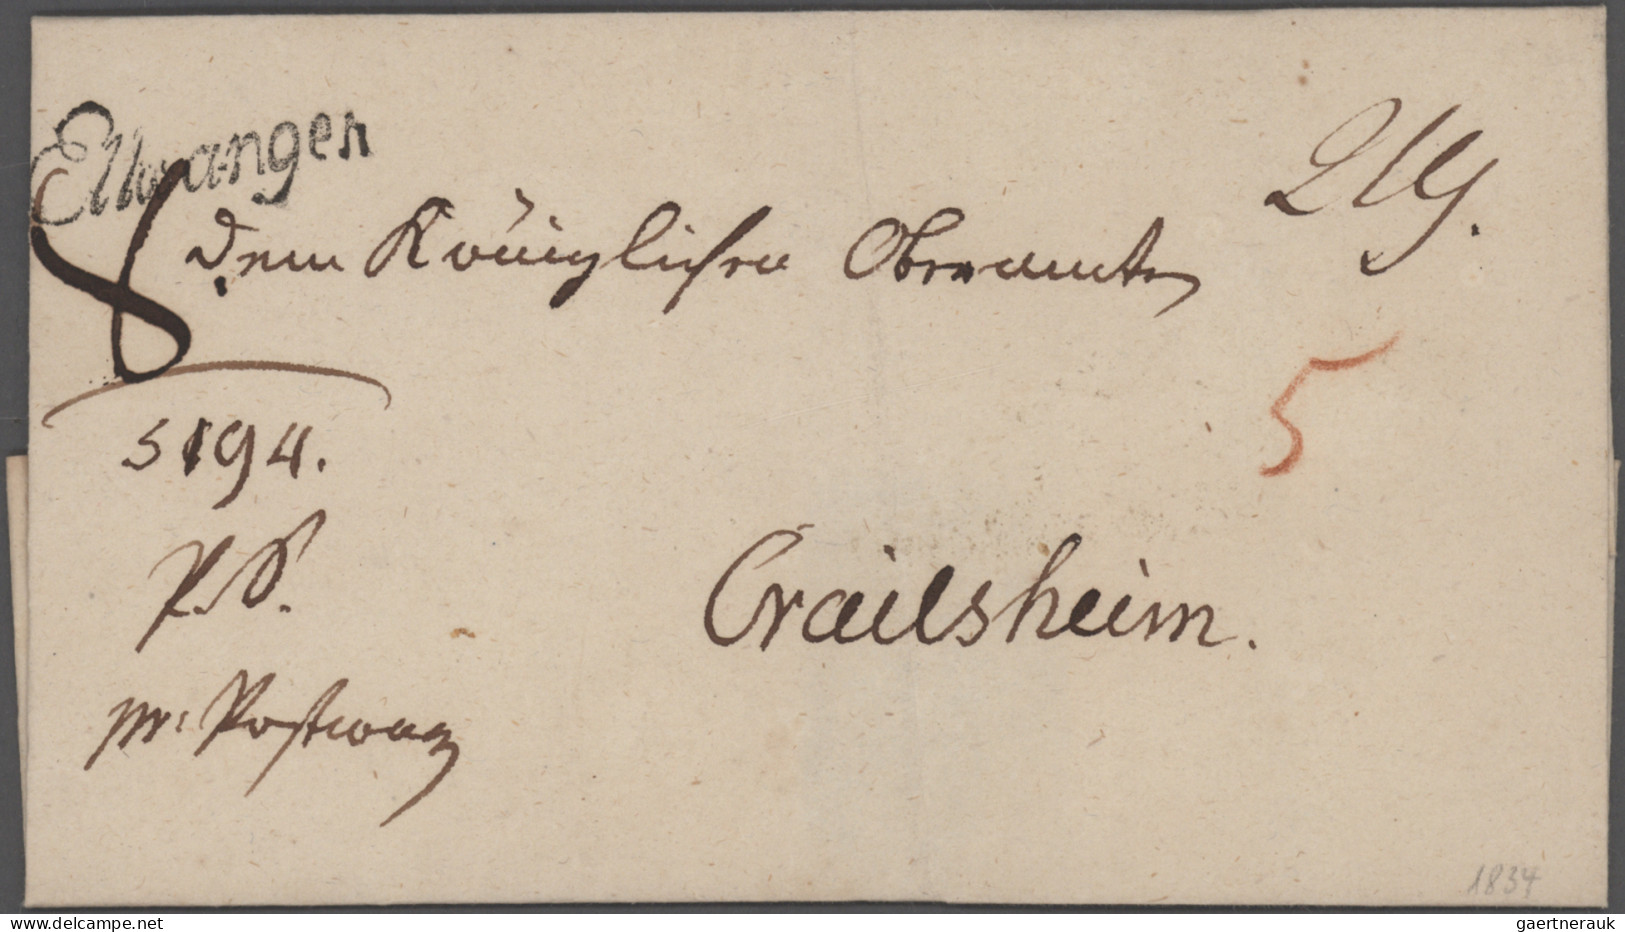 Ellwangen
8
Dem Königlichen Oberamte
5
5194.
P. S.
Crailsheim.
pr: Postwag
1834
www.delcampe.net
gaertnerauk